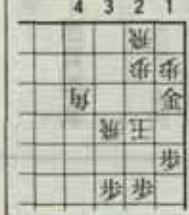 4 3 2 1
飛
歩 歩
角 金
飛 王
歩
歩 歩